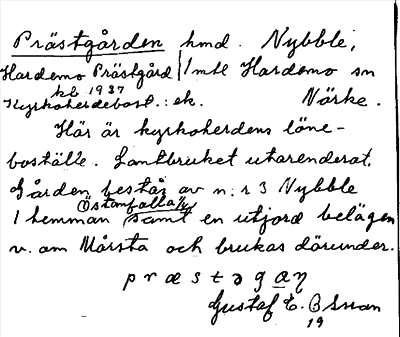 Prästgården hmd. Nybble,
Hardemo Prästgård | 1 mtl Hardemo sn
kb 1937
Kyrkoherdebost.: ek. Närke.
Här är kyrkoherdens löne-
boställe. Lantbruket utarenderat.
Gården består av n:r 3 Nybble
Östanfalla
1 hemman samt en utjord belägen
v. om Mårsta och brukas därunder.
præstəgaŋ
Gustaf E.
19